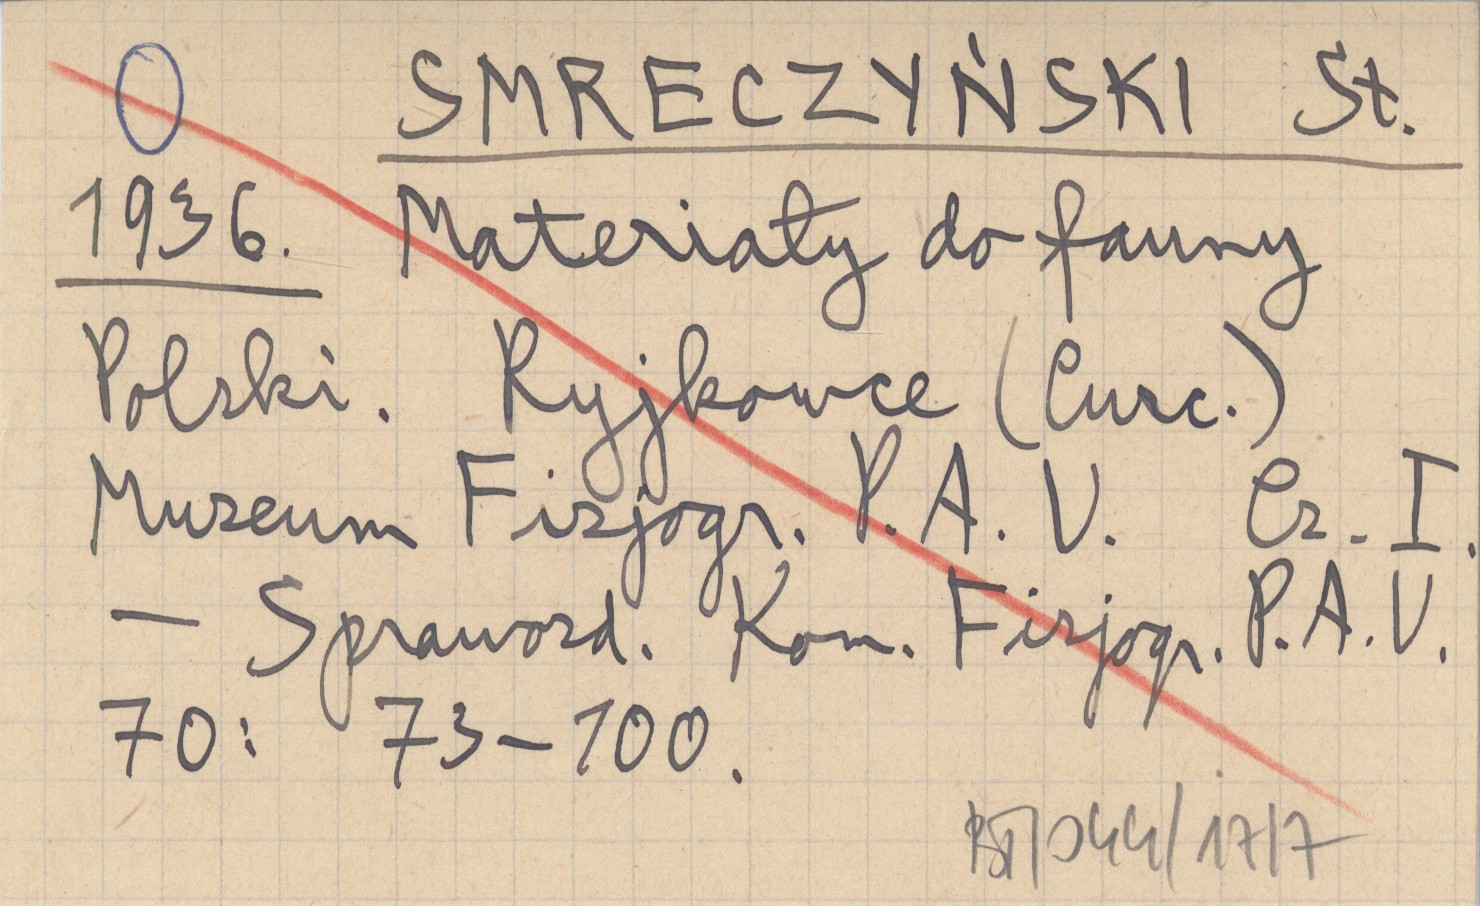 SMRECZYŃSKI St.
1936. Materiały do fauny
Polski. Ryjkowce (Curc.)
Muzeum Fizjogr. P.A.U. Cz. I.
— Sprawozd. Kom. Fizjogr. P.A.U.
70: 73-100.